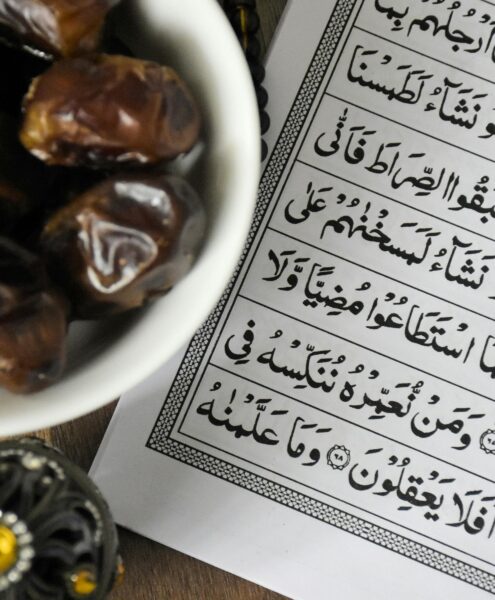 ارجلهم بما
نَشَآءُ لَطَمَسْنَا
الصِّرَاطَ فَاَنّٰى
نَشَآءُ لَمَسَخْنٰهُمْ عَلٰى
اسْتَطَاعُوْا مُضِيًّا وَّلَا
وَمَنْ نُّعَمِّرْهُ نُنَكِّسْهُ فِى
اَفَلَا يَعْقِلُوْنَ ۶۸ وَمَا عَلَّمْنٰهُ